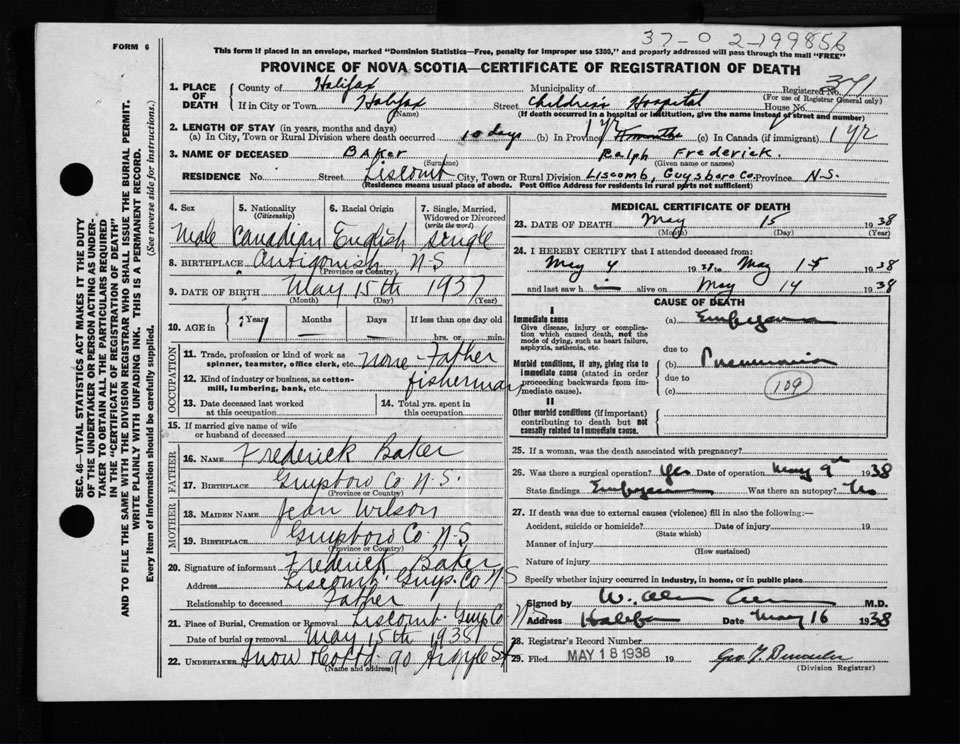 37-0 2-199856
FORM 6
This form if placed in an envelope, marked "Dominion Statistics—Free, penalty for improper use $300," and properly addressed will pass through the mail "FREE"
PROVINCE OF NOVA SCOTIA—CERTIFICATE OF REGISTRATION OF DEATH
1. PLACE OF DEATH
County of Halifax Municipality of Registered No. 371
(For use of Registrar General only)
If in City or Town Halifax Street Children's Hospital House No.
(Name) (If death occurred in a hospital or institution, give the name instead of street and number)
2. LENGTH OF STAY (in years, months and days)
(a) In City, Town or Rural Division where death occurred 10 days (b) In Province 1 yr (c) In Canada (if immigrant) 1 yr
3. NAME OF DECEASED BAKER Ralph Frederick.
(Surname) (Given name or names)
RESIDENCE No. Street Liscomb City, Town or Rural Division Liscomb, Guysboro Co. Province N.S.
(Residence means usual place of abode. Post Office Address for residents in rural parts not sufficient)
4. Sex 5. Nationality (Citizenship) 6. Racial Origin 7. Single, Married, Widowed or Divorced (write the word)
Male Canadian English Single
8. BIRTHPLACE Antigonish N-S
(Province or Country)
9. DATE OF BIRTH May 15th 1937
(Month) (Day) (Year)
10. AGE in Years Months Days If less than one day old
1 — — hrs. or min.
OCCUPATION
11. Trade, profession or kind of work as spinner, teamster, office clerk, etc. none - Father
12. Kind of industry or business, as cotton-mill, lumbering, bank, etc. fisherman
13. Date deceased last worked at this occupation 14. Total yrs. spent in this occupation
15. If married give name of wife or husband of deceased
FATHER
16. NAME Frederick Baker
17. BIRTHPLACE Guysboro Co. N.S.
(Province or Country)
MOTHER
18. MAIDEN NAME Jean Wilson
19. BIRTHPLACE Guysboro Co. N-S
(Province or Country)
20. Signature of informant Frederick Baker
Address Liscomb. Guys. Co N S
Relationship to deceased Father
21. Place of Burial, Cremation or Removal Liscomb. Guys Co N S
Date of burial or removal May 15th 1938
22. UNDERTAKER Snow & Co Ltd 90 Argyle St
(Name and address)
MEDICAL CERTIFICATE OF DEATH
23. DATE OF DEATH May 15 1938
(Month) (Day) (Year)
24. I HEREBY CERTIFY that I attended deceased from
May 4 1938 to May 15 1938
and last saw h im alive on May 14 1938
CAUSE OF DEATH
I
Immediate cause (a) Empyema
Give disease, injury or complication which caused death, not the mode of dying, such as heart failure, asphyxia, asthenia, etc.
due to
Morbid conditions, if any, giving rise to immediate cause (stated in order proceeding backwards from immediate cause). (b) Pneumonia
due to
(c) 109
II
Other morbid conditions (if important) contributing to death but not causally related to immediate cause.
25. If a woman, was the death associated with pregnancy?
26. Was there a surgical operation? Yes Date of operation May 9th 1938
State findings Empyema Was there an autopsy? No
27. If death was due to external causes (violence) fill in also the following:—
Accident, suicide or homicide? Date of injury 19
(State which)
Manner of injury
(How sustained)
Nature of injury
Specify whether injury occurred in industry, in home, or in public place
Signed by W. M.D.
Address Halifax Date May 16 1938
28. Registrar's Record Number
29. Filed MAY 18 1938 19 Geo. F.
(Division Registrar)
SEC. 46—VITAL STATISTICS ACT MAKES IT THE DUTY
OF THE UNDERTAKER OR PERSON ACTING AS UNDER-
TAKER TO OBTAIN ALL THE PARTICULARS REQUIRED
IN THE "CERTIFICATE OF REGISTRATION OF DEATH"
AND TO FILE THE SAME WITH THE DIVISION REGISTRAR WHO SHALL ISSUE THE BURIAL PERMIT.
WRITE PLAINLY WITH UNFADING INK. THIS IS A PERMANENT RECORD.
Every item of information should be carefully supplied. (See reverse side for instructions.)